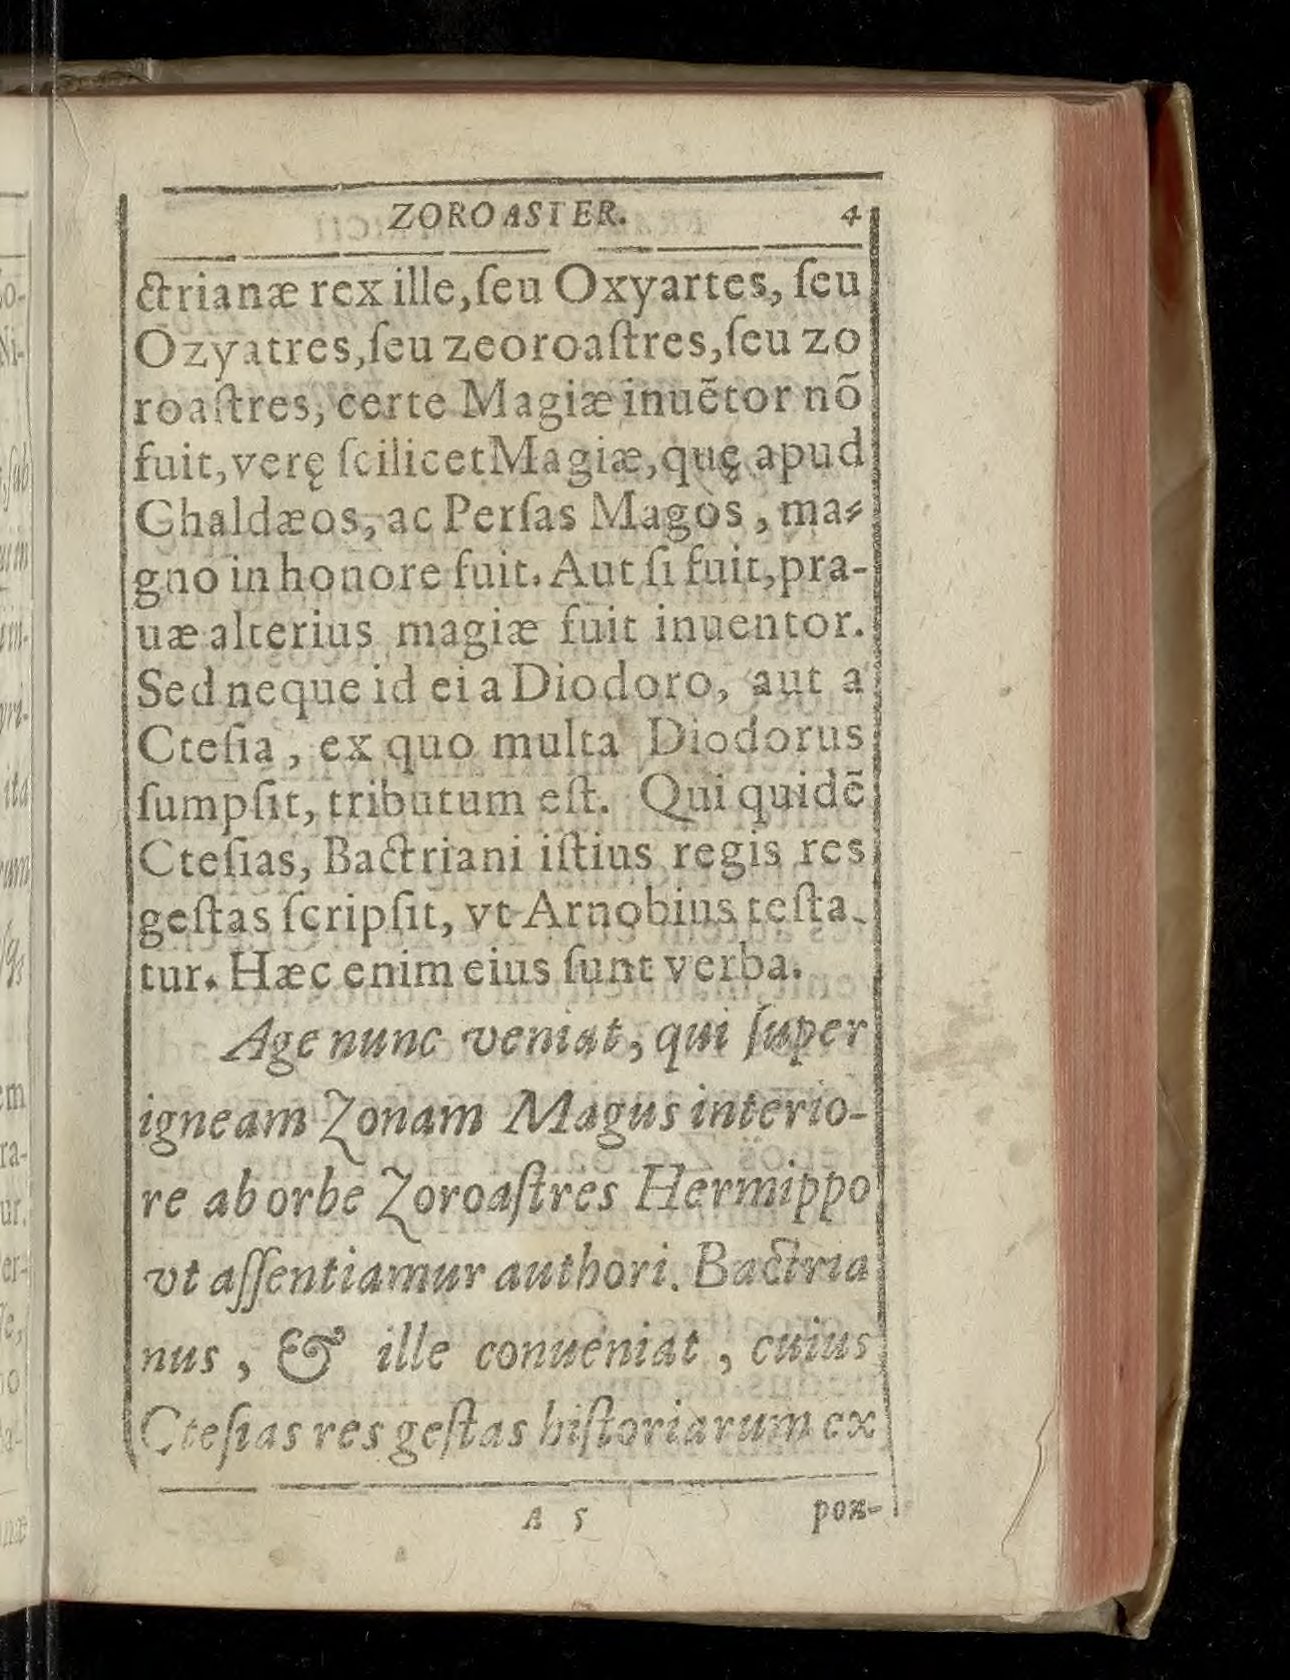 ZOROASTER. 4
ctrianæ rex ille, ſeu Oxyartes, ſeu
Ozyatres, ſeu zeoroaſtres, ſeu zo
roaſtres, certe Magiæ inuẽtor nõ
fuit, verę ſcilicet Magiæ, quę apud
Chaldæos, ac Perſas Magos, ma-
gno in honore fuit. Aut ſi fuit, pra-
uæ alterius magiæ fuit inuentor.
Sed neque id ei a Diodoro, aut a
Cteſia, ex quo multa Diodorus
ſumpſit, tributum eſt. Qui quidẽ
Cteſias, Bactriani iſtius regis res
geſtas ſcripſit, vt Arnobius teſta-
tur. Hæc enim eius ſunt verba.
Age nunc veniat, qui ſuper
igneam Zonam Magus interio-
re ab orbe Zoroaſtres Hermippo
vt aſſentiamur authori. Bactria
nus, & ille conueniat, cuius
Cteſias res geſtas hiſtoriarum ex
A 5 pon-